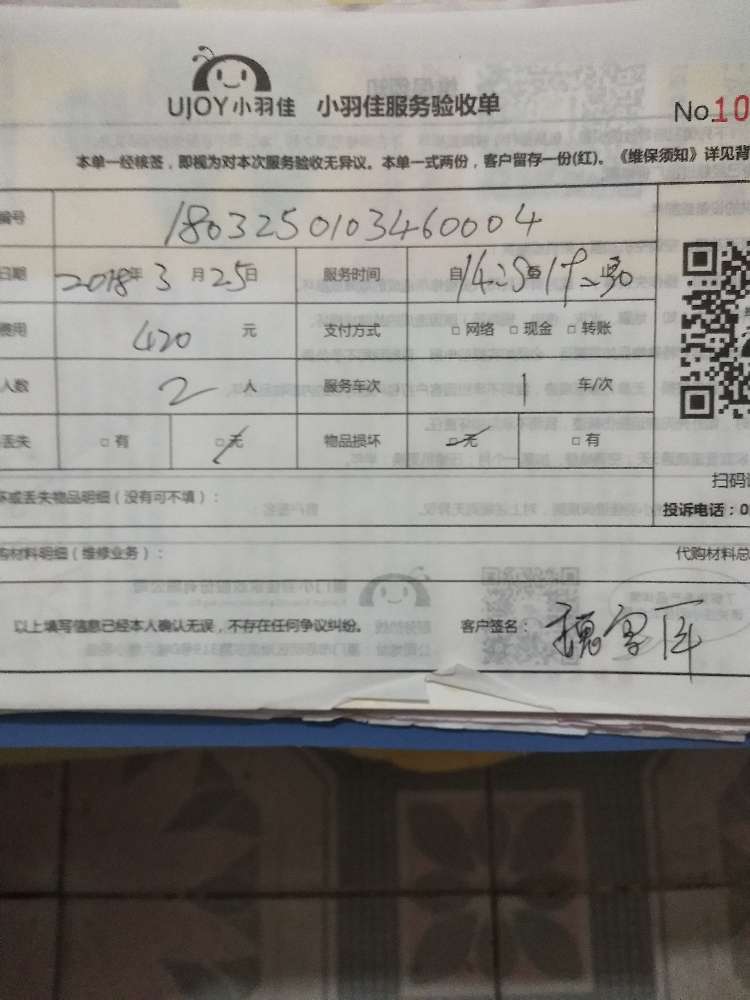 UJOY小羽佳 小羽佳服务验收单
No.10
本单一经核签，即视为对本次服务验收无异议。本单一式两份，客户留存一份(红)。《维保须知》详见背
编号 1803250103460004
日期 2018年3月25日 服务时间 自14:25至
费用 420 元 支付方式 □ 网络 □ 现金 □ 转账
人数 2 人 服务车次 1 车/次
丢失 □ 有 □ 无 物品损坏 □ 无 □ 有
坏或丢失物品明细（没有可不填）：
扫码
投诉电话：0
购材料明细（维修业务）：
代购材料总
以上填写信息已经本人确认无误，不存在任何争议纠纷。 客户签名：